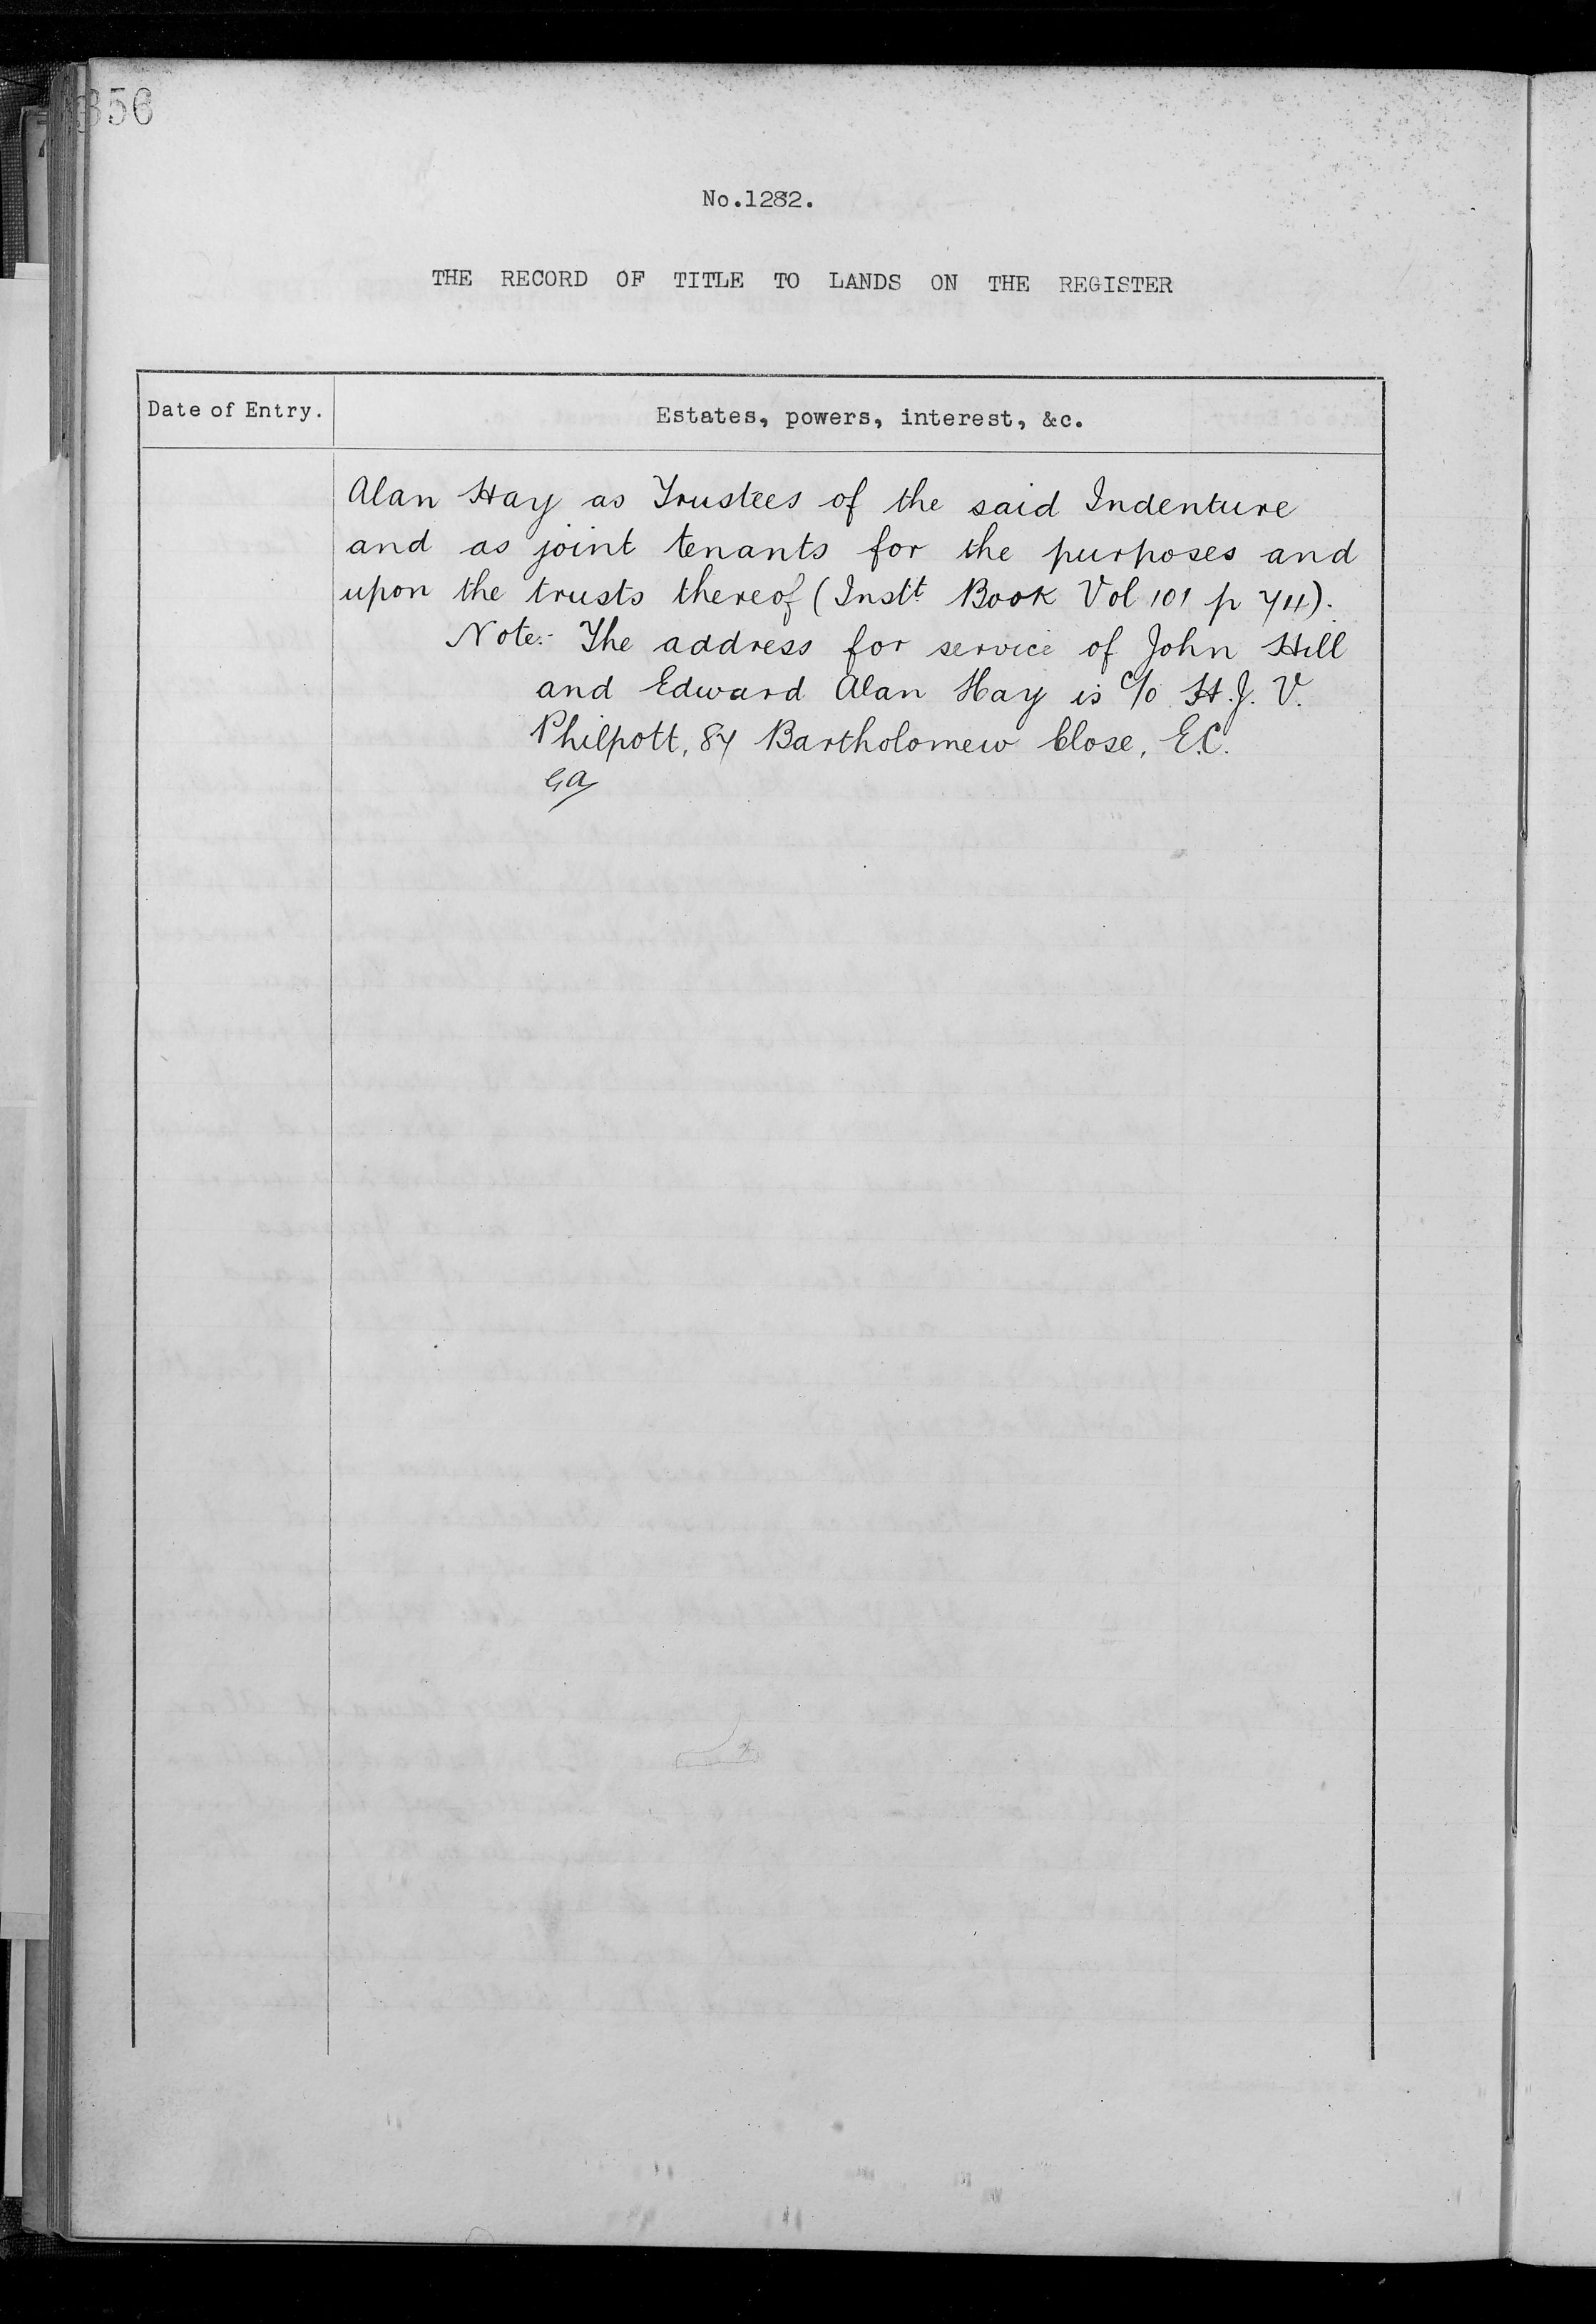 356
No.1282.
THE RECORD OF TITLE TO LANDS ON THE REGISTER
Date of Entry.
Estates, powers, interest, &c.
Alan Hay as Trustees of the said Indenture
and as joint tenants for the purposes and
upon the trusts thereof (Instt Book Vol 101 p 74).
Note:- The address for service of John Hill
and Edward Alan Hay is c/o H.J.V.
Philpott, 87 Bartholomew Close, E.C.